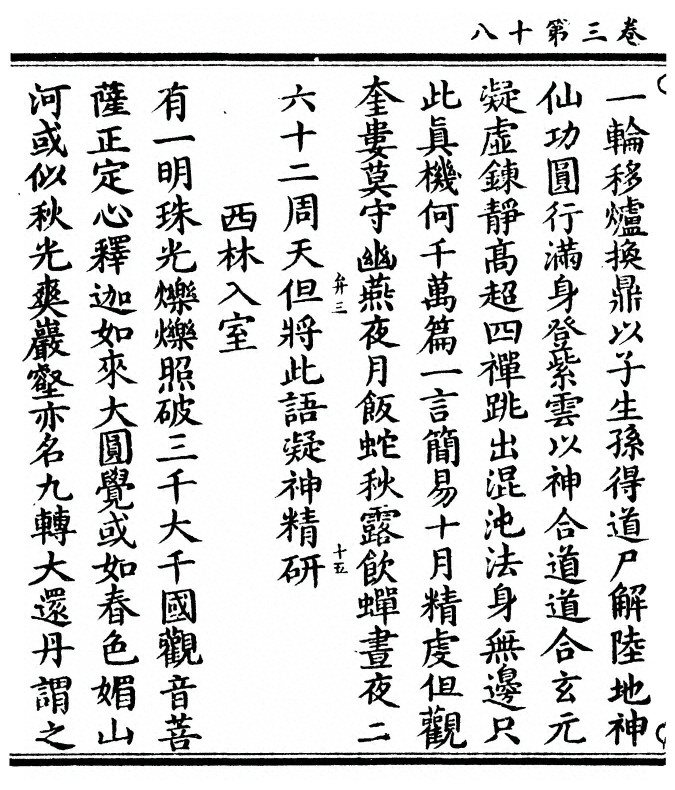 卷三第十八
一輪移爐換鼎以子生孫得道尸解陸地神
仙功圓行滿身登紫雲以神合道道合玄元
凝虛鍊靜髙超四禪跳出混沌法身無邊只
此眞機何千萬篇一言簡易十月精虔但觀
奎婁莫守幽燕夜月飯蛇秋露飲蟬晝夜二
弁三
十五
六十二周天但將此語凝神精研
西林入室
有一明珠光爍爍照破三千大千國觀音菩
薩正定心釋迦如來大圓覺或如春色媚山
河或似秋光爽巖壑亦名九轉大還丹謂之